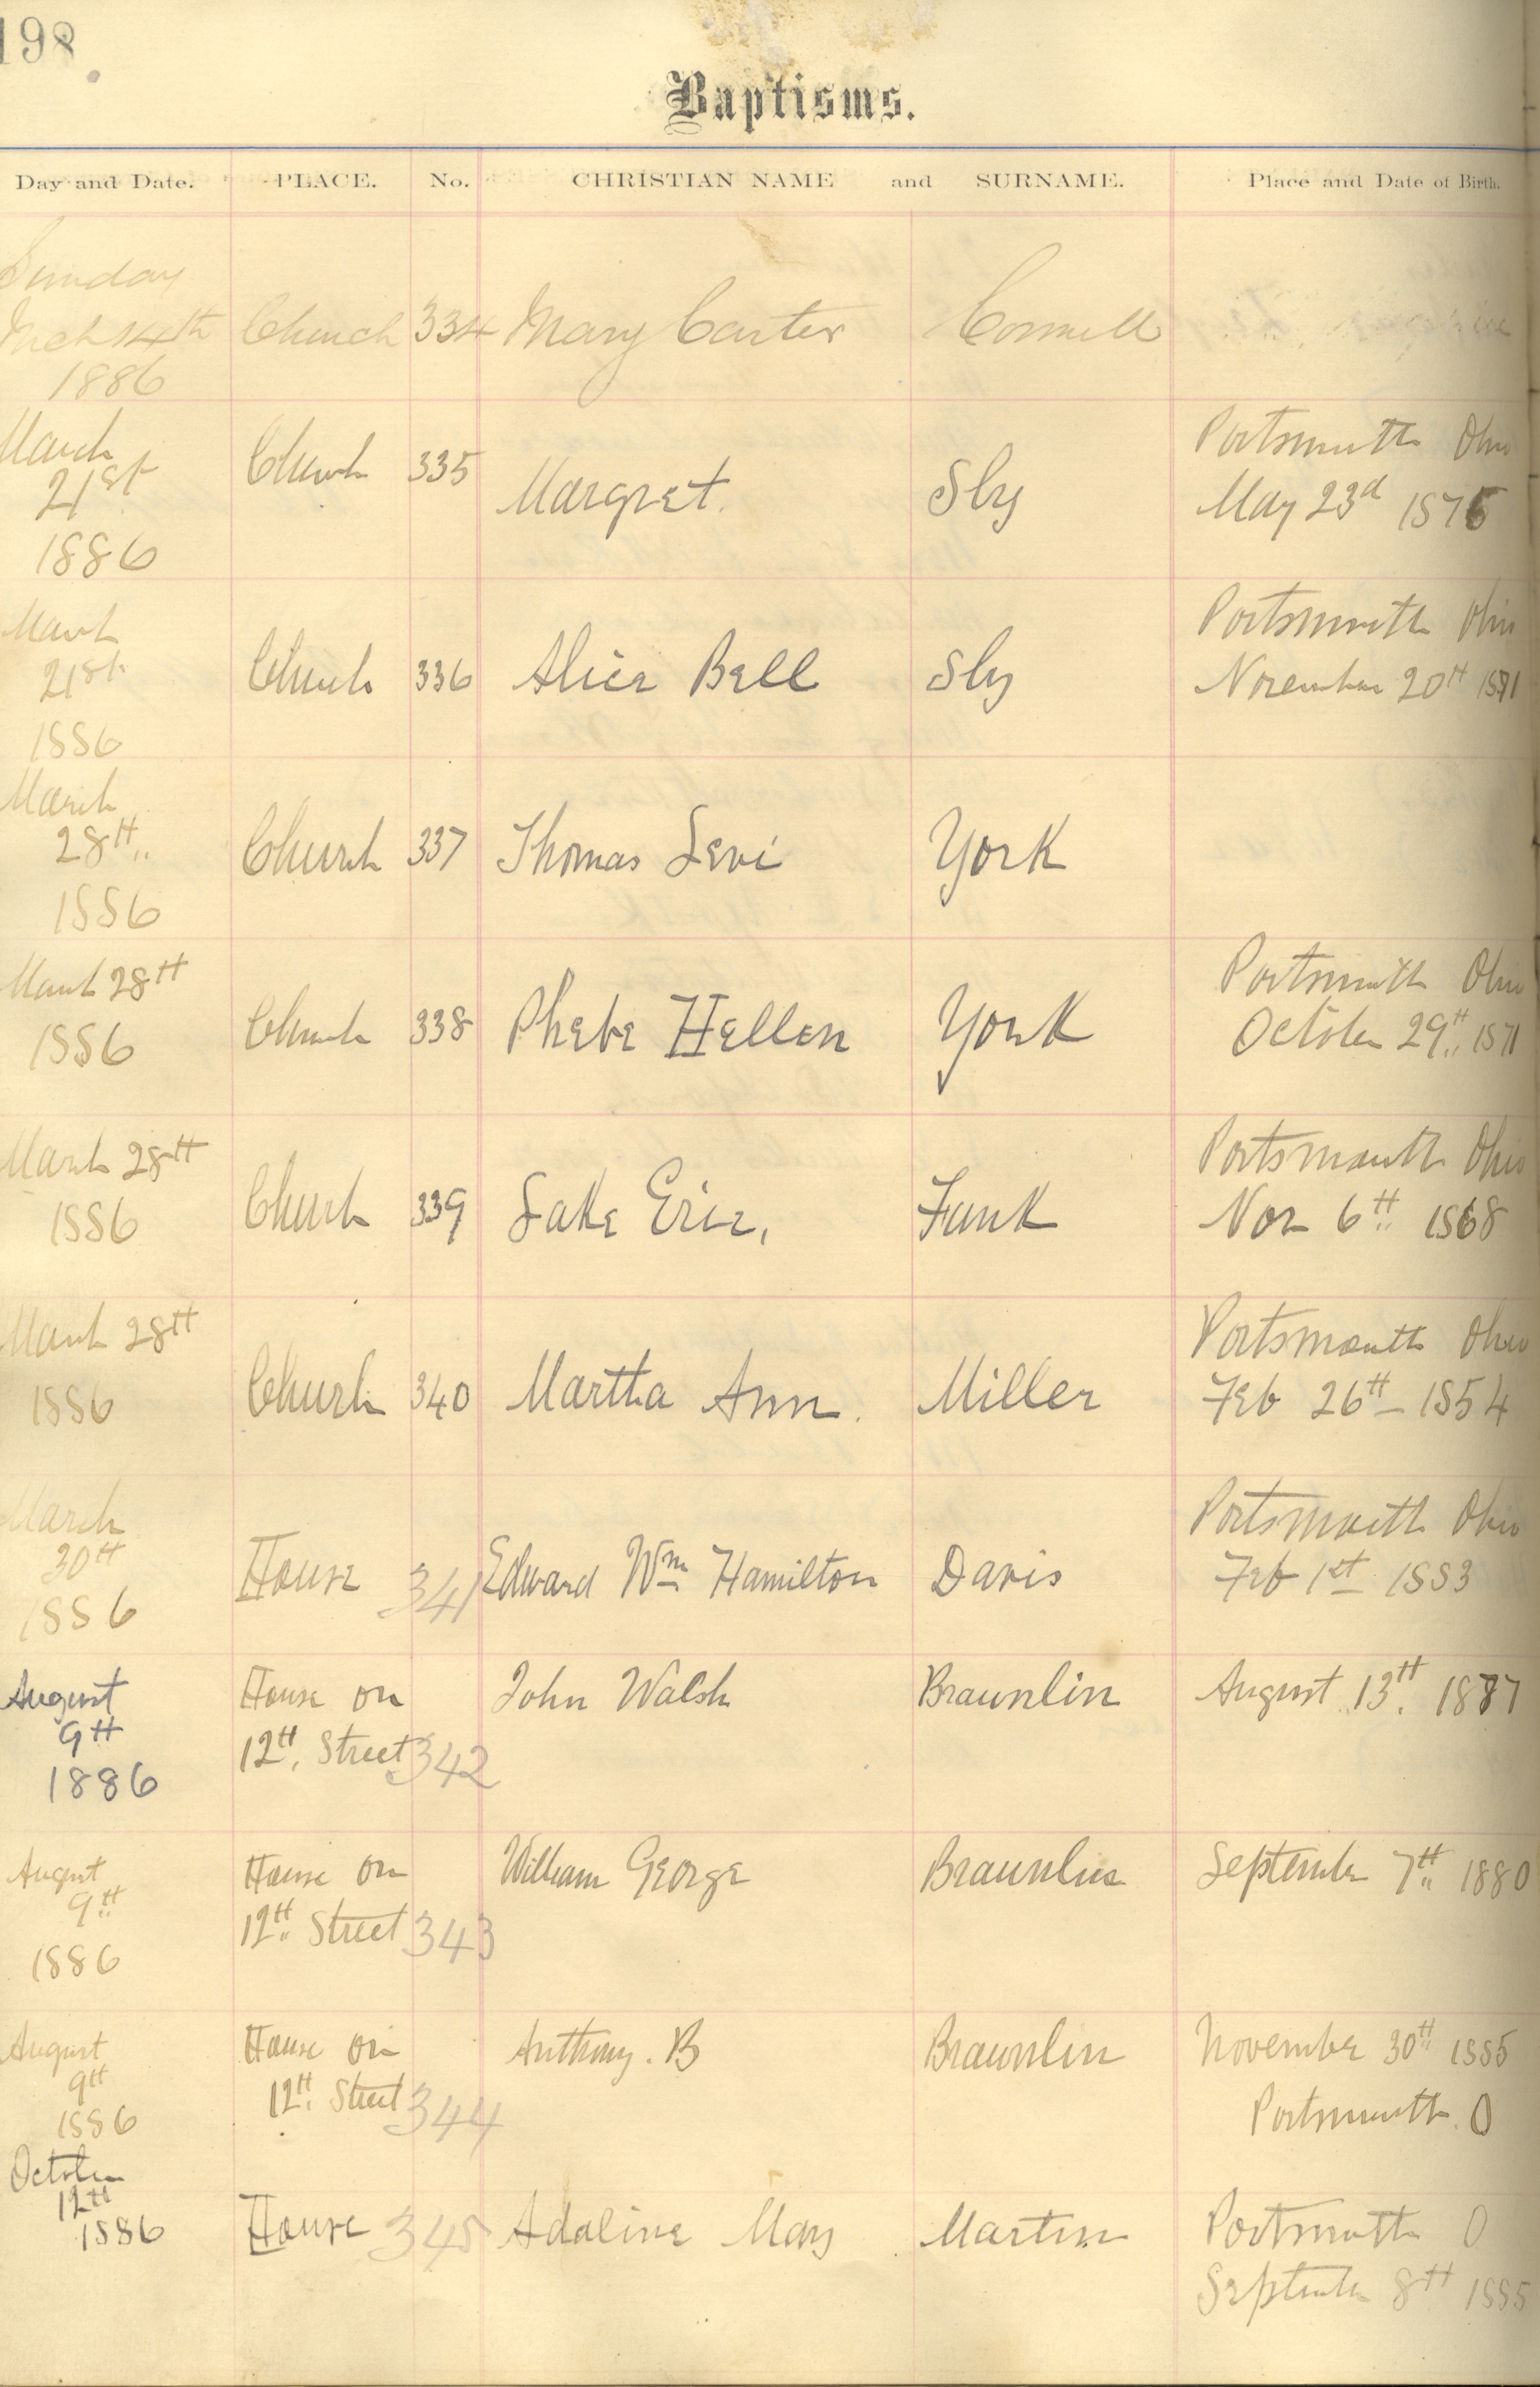 198
Baptisms.
Day and Date. PLACE. No. CHRISTIAN NAME and SURNAME. Place and Date of Birth.
Sunday
14th Church 334 Mary Carter Connell
1886
March Portsmouth Ohio
21st Church 335 Margret. Sly May 23d 1876
1886
March Portsmouth Ohio
21st Church 336 Alice Bell Sly November 20th 1871
1886
March
28th Church 337 Thomas Levi York
1886
March 28th Portsmouth Ohio
1886 Church 338 Phebe Hellen York October 29th 1871
March 28th Portsmouth Ohio
1886 Church 339 Lake Erie, Funk Nov 6th 1868
March 28th Portsmouth Ohio
1886 Church 340 Martha Ann. Miller Feb 26th 1854
March Portsmouth Ohio
30th House 341 Edward Wm Hamilton Davis Feb 1st 1883
1886
August House on John Walsh Braunlin August 13th. 1887
9th 12th. Street 342
1886
August House on William George Braunlin September 7th 1880
9th 12th Street 343
1886
August House on Anthony. B Braunlin November 30th 1885
9th 12th. Street 344 Portsmouth. O
1886
October
12th
1886 House 345 Adaline May Martin Portsmouth O
September 8th 1885